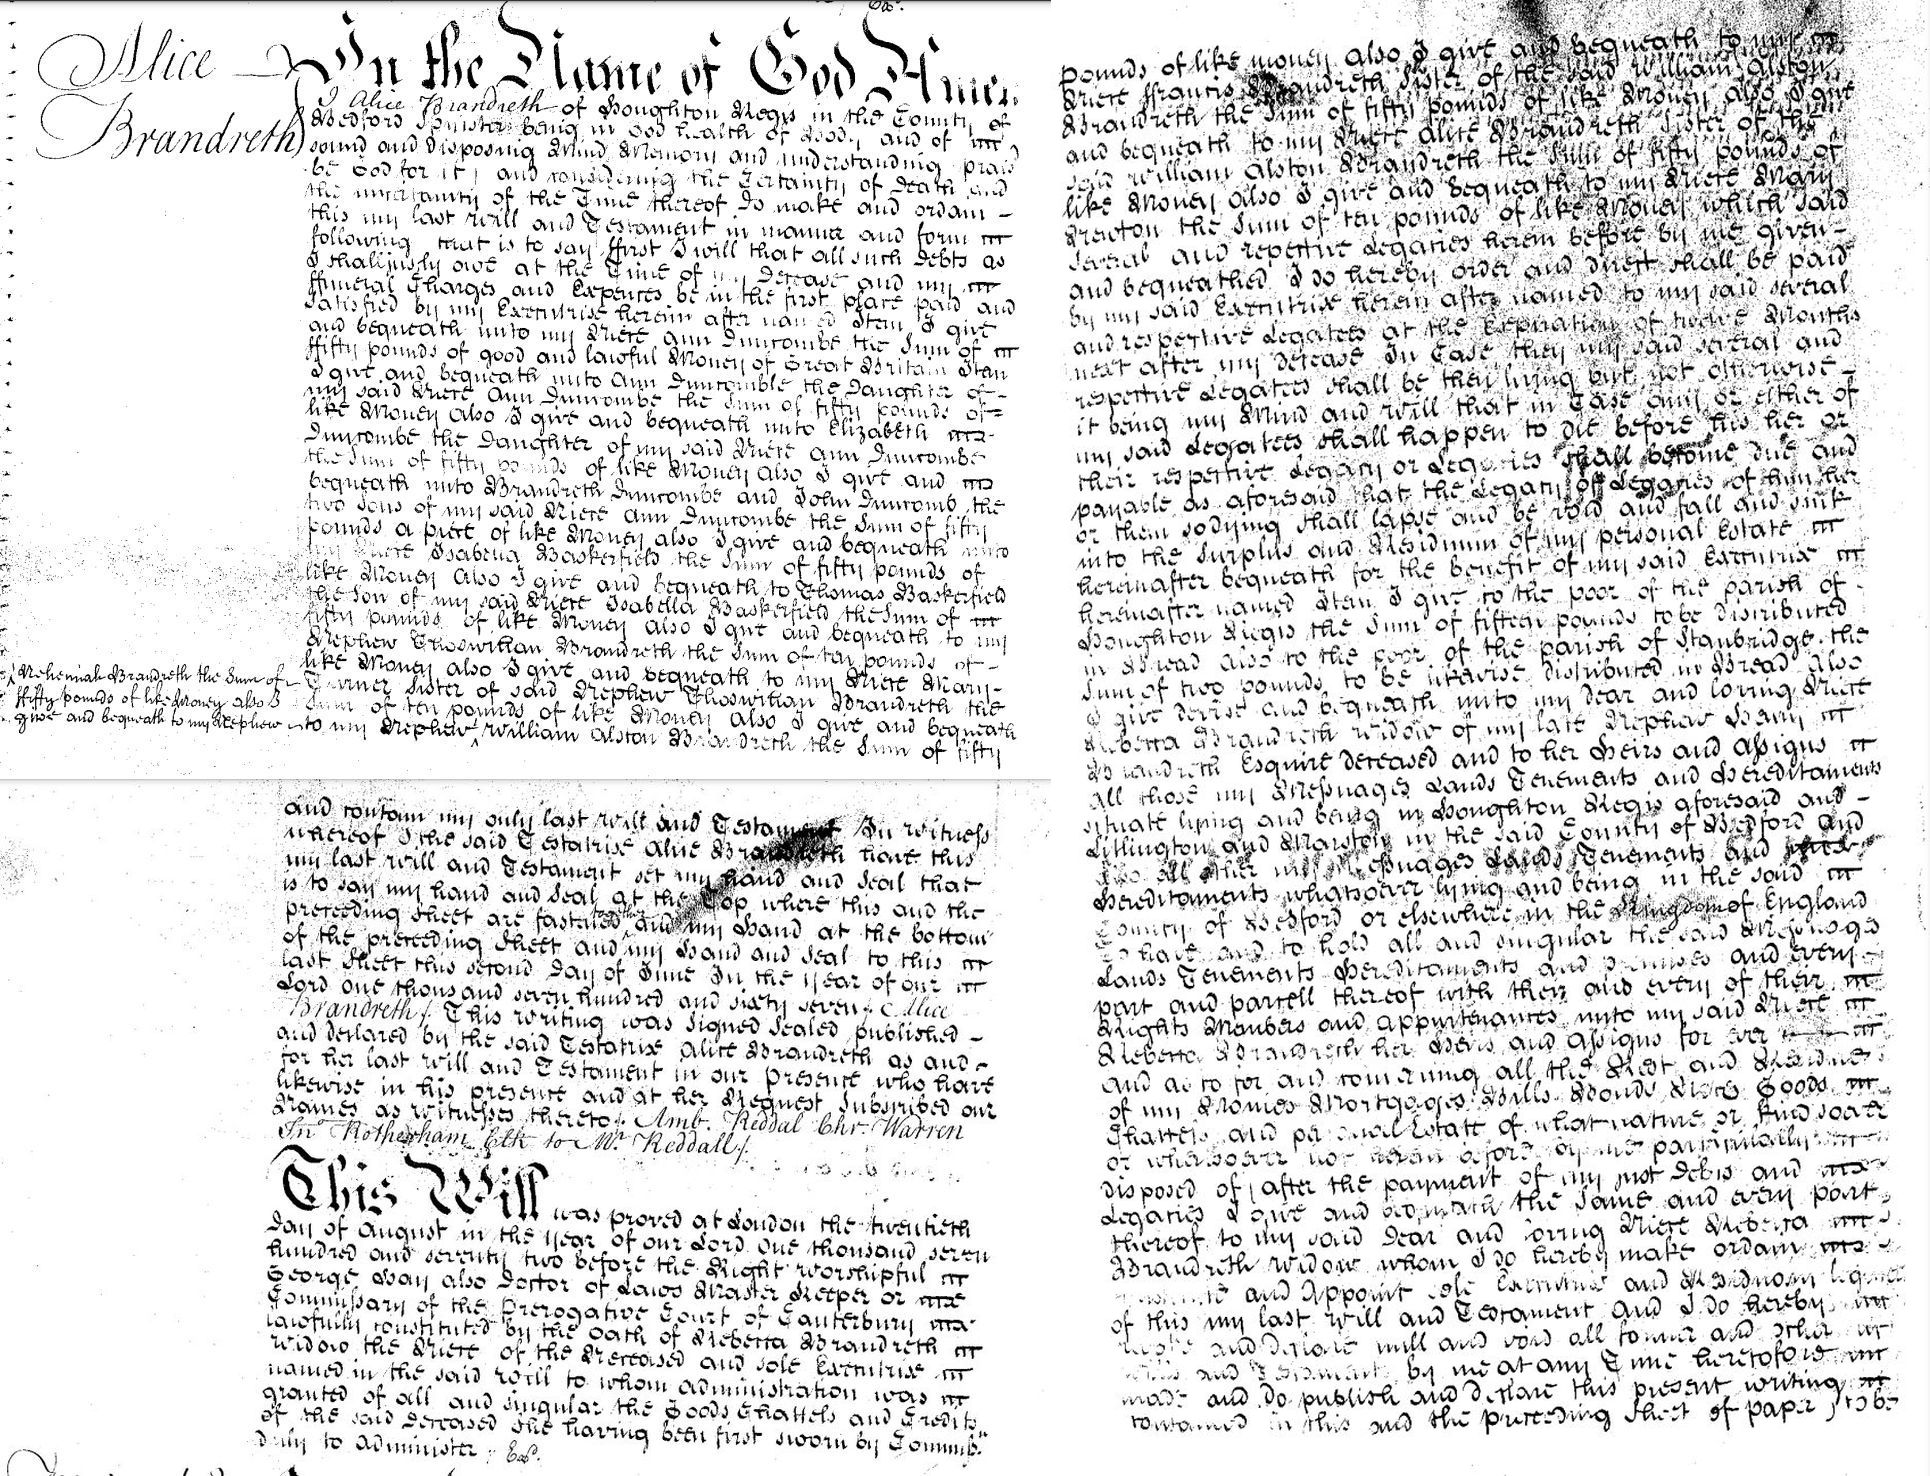 Alice
Brandreth
In the Name of God Amen
I Alice Brandreth of Houghton Regis in the County of
Bedford Spinster being in God health of Body and of
sound and disposing Mind Memory and understanding prais
be God for it) and considering the Certainty of Death and
the uncertainty of the Time thereof Do make and ordain -
this my last Will and Testament in manner and form
following that is to say ffirst I will that all such Debts as
I shall justly owe at the Time of my Decease and my
ffuneral Charges and Expences be in the first place paid and
satisfied by my Executrix herein after named Item I give
and bequeath unto my Niece Ann Duncombe the Sum of
ffifty pounds of good and lawful Money of Great Britain Item
I give and bequeath unto Ann Duncomble the Daughter of -
my said Niece Ann Duncombe the Sum of fifty pounds of
like Money Also I give and bequeath unto Elizabeth
Duncombe the Daughter of my said Niece Ann Duncombe
the Sum of fifty pounds of like Money Also I give and
bequeath unto Brandreth Duncombe and John Duncomb the
two Sons of my said Niece Ann Duncombe the Sum of fifty
pounds a piece of like Money also I give and bequeath unto
my Niece Isabella Baskerfield the Sum of fifty pounds of
like Money Also I give and bequeath to Thomas Baskerfield
the Son of my said Niece Isabella Baskerfield the Sum of
fifty pounds of like Money Also I give and bequeath to my
Nephew Thoswillian Brandreth the Sum of ten pounds of -
like Money also I give and bequeath to my Niece Mary -
Turner Sister of said Nephew Thoswillian Brandreth the
Sum of ten pounds of like Money Also I give and bequeath
to my Nephew ^ William Alston Brandreth the Sum of fifty
Nehemiah Brandreth the Sum of
ffifty pounds of like Money also I
give and bequeath to my Nephew
pounds of like money Also I give and bequeath to my
Niece ffrancis Brandreth Sister of the said William Alston
Brandreth the Sum of fifty pounds of like Money Also I give
and bequeath to my Niece Alice Brandreth Sister of the
said William Alston Brandreth the Sum of fifty pounds of
like Money Also I give and bequeath to my Niece Mary
the Sum of ten pounds of like Money which said
several and repective Legacies herein before by me given -
and bequeathed I do hereby order and direct shall be paid
by my said Executrix herein after named to my said several
and respective Legatees at the Expiration of twelve Months
next after my Decease In Case they my said several and
respective Legatees shall be then living but not otherwise -
it being my Mind and Will that in Case any or either of
my said Legatees shall happen to die before his her or
their respective Legacy or Legacies shall become due and
payable as aforesaid that the Legacy or Legacies of him her
or them so dying shall lapse and be void and fall and sink
into the Surplus and Residuum of my personal Estate
hereinafter bequeath for the benefit of my said Executrix
hereinafter named Item I give to the poor of the parish of -
Houghton Regis the Sum of fifteen pounds to be distributed
in Bread also to the poor of the parish of Stanbridge the
Sum of two pounds to be likewise distributed in Bread Also
I give devise and bequeath unto my dear and loving Niece
Rebecca Brandreth widow of my late Nephew Henry
Brandreth Esquire deceased and to her Heirs and Assigns
All those my Messuages Lands Tenements and Hereditaments
situate lying and being in Houghton Regis aforesaid and -
Litlington and Marston in the said County of Bedford And
also all other my Messuages Lands Tenements and
Hereditaments whatsoever lying and being in the said
County of Bedford or elsewhere in the Kingdom of England
To have and to hold all and singular the said Messuages
Lands Tenements Hereditaments and premises and every -
part and parcell thereof with their and every of their
Rights Members and Appurtenances unto my said Niece
Rebecca Brandreth her Heirs and Assigns for Ever
And as to for and concerning all the Rest and Residue
of my Monies Mortgages Bills Bonds Notes Goods
Chattels and personal Estate of what nature or kind soever
or wheresoever not herein before by me particularly
disposed of (after the payment of my just Debts and
Legacies I give and bequeath the same and every part
thereof to my said dear and loving Niece Rebecca
Brandreth Widow whom I do hereby make ordain
and Appoint sole Executrix and Residuary
of this my last Will and Testament and I do hereby
revoke and declare null and void all former and other
Wills and Testaments by me at any Time heretofore
made and do publish and declare this present writing
contained in this and the preceeding Sheet of paper) to be
and contain my only last Will and Testament In Witness
whereof I the said Testatrix Alice Brandreth have this
my last Will and Testament set my hand and Seal that
is to say my hand and Seal at the Top where this and the
preceeding Sheet are fastened and my Hand at the bottom
of the preceeding Sheet and my Hand and Seal to this
last Sheet this second Day of June In the Year of our
Lord one thousand seven hundred and sixty seven Alice
Brandreth This writing was signed sealed published -
and declared by the said Testatrix Alice Brandreth as and -
for her last Will and Testament in our presence who have
likewise in his presence and at her Request subscribed our
Names as witnesses thereto Amb. Reddal Chr. Warren
Jno Rotherham Clk to Mr. Reddall
This Will was proved at London the twentieth
Day of August in the Year of our Lord One thousand seven
hundred and seventy two before the Right Worshipful
George Hay also Doctor of Laws Master Keeper or
Commissary of the Prerogative Court of Canterbury
lawfully constituted by the Oath of Rebecca Brandreth
Widow the Niece of the Deceased and sole Executrix
named in the said Will to whom Administration was
granted of all and singular the Goods Chattels and Credits
of the said deceased she having been first sworn by Commis.
duly to Administer Ex.